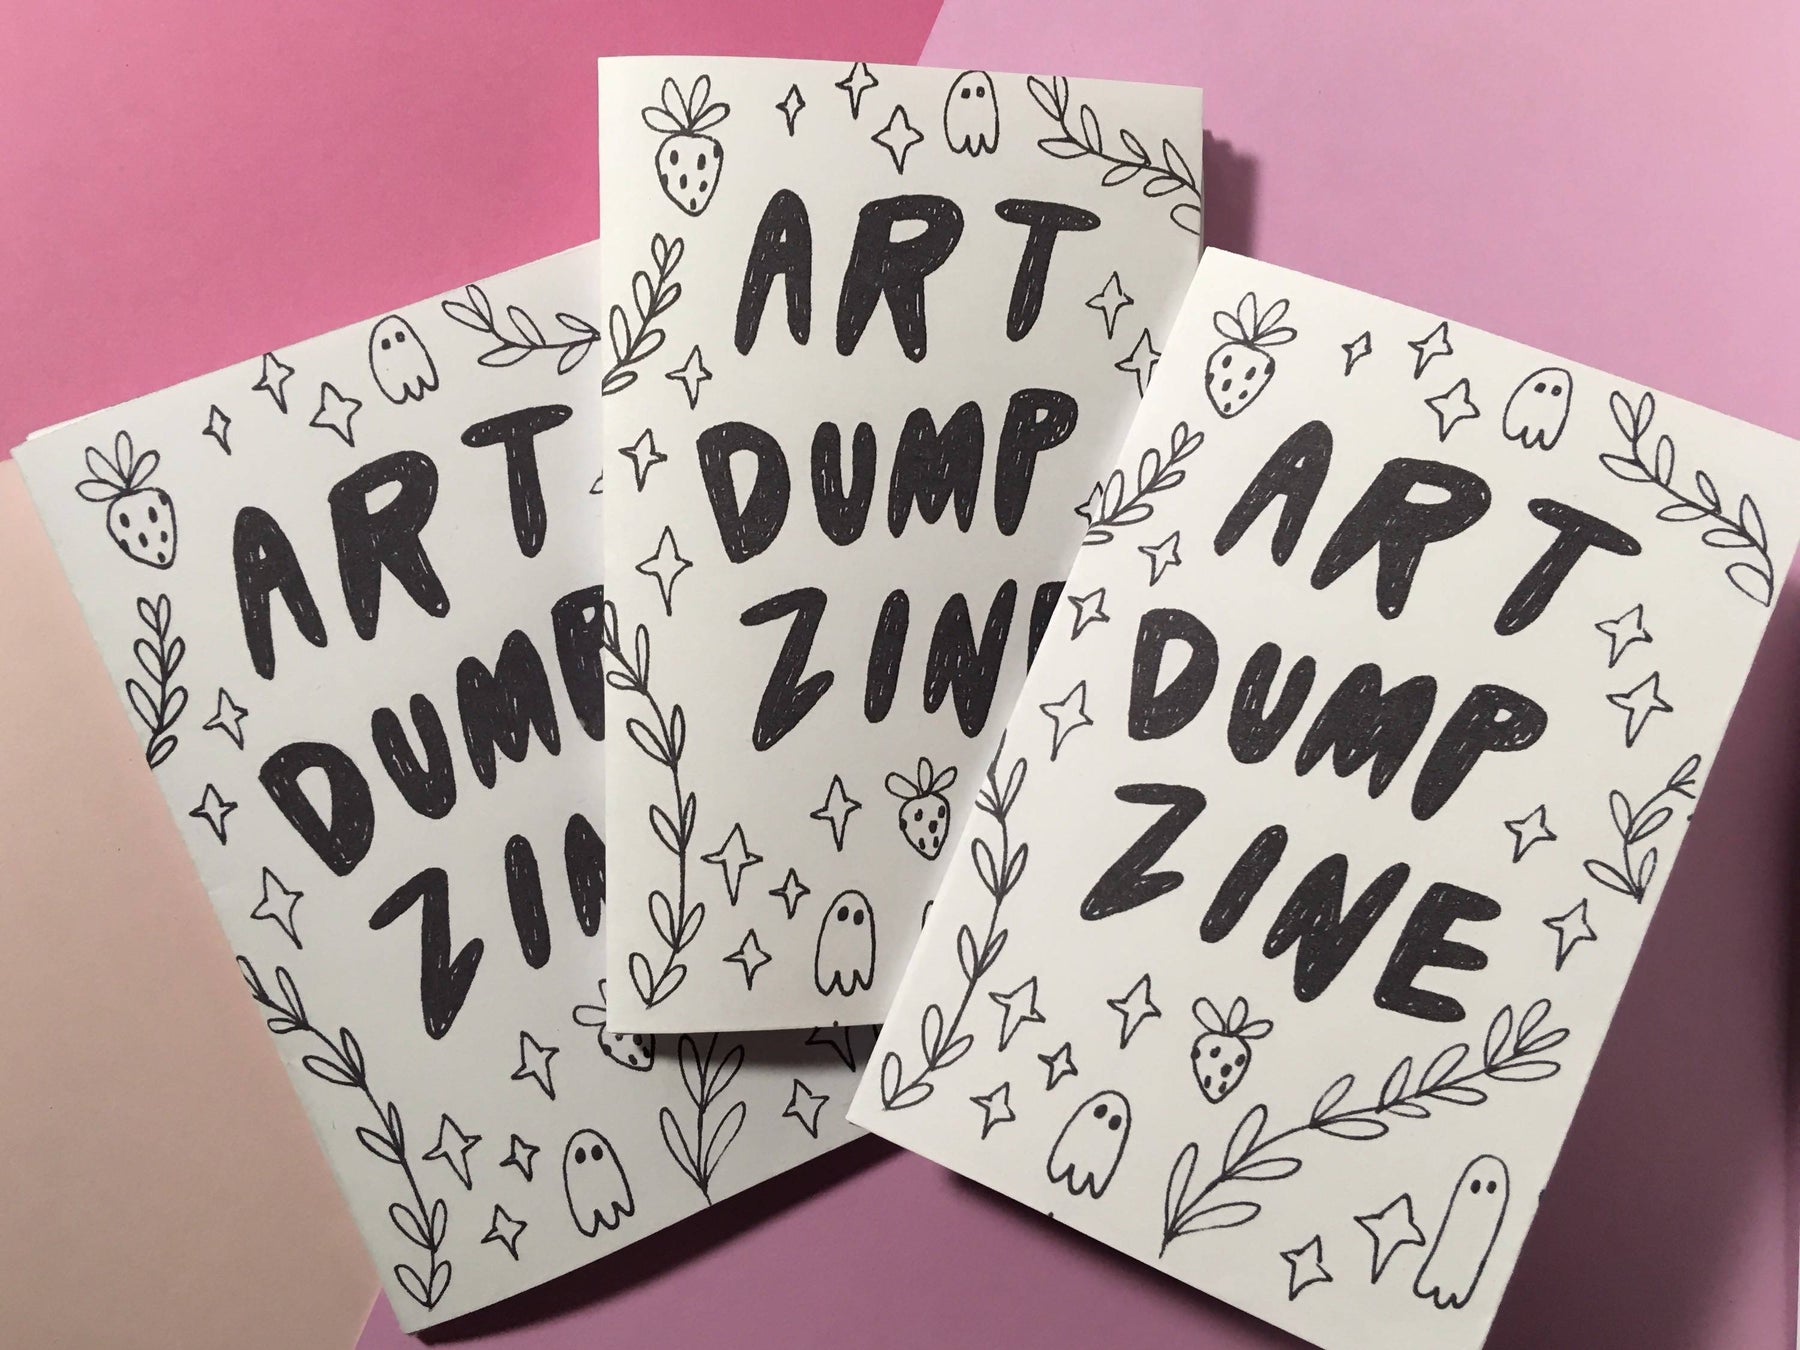 ART
DUMP
ZIN
ART
DUMP
ZINE
ART
DUMP
ZINE